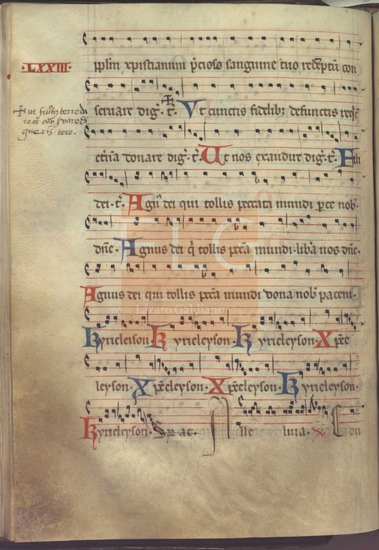 ·LXXIII·
pplm xpistianum p̄cioso sanguine tuo redēptū con
seruare dig̅. t̄. Vt cunctis fidelib; defunctis req̄e
et̄na donare dig̅. t̄. Ut nos exaudire dig̅. t̄. Fili
dei. t̄. Agn̄ dei qui tollis peccata mundi parce nob̄
dn̄e. Agnus dei q̄ tollis pccā mundi. libȧ nos dn̄e.
Agnus dei qui tollis pccā mundi dona nob̄ pacem.
Kyrieleyson. Kyrieleyson. Kyrieleyson. Xp̄e
leyson. Xp̄eleyson. Xp̄eleyson. Kyrieleyson.
Kyrieleyson. lle luia.